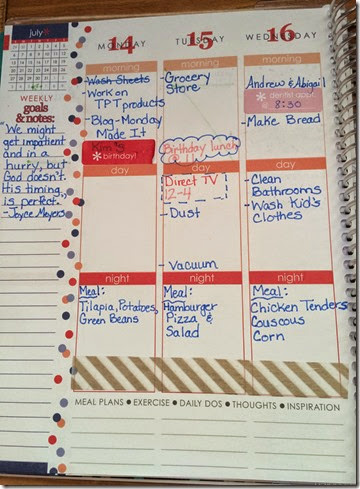 july
WEEKLY
goals
& notes:
"We might
get impatient
and in a
hurry, but
God doesn't.
His timing
is perfect."
-Joyce Meyers
14
MONDAY
morning
-Wash Sheets
-Work on
TPT products
-Blog-Monday
Made It
Kim's
* birthday!
day
night
Meal:
Tilapia, Potatoes,
Green Beans
15
TUESDAY
morning
-Grocery
Store
Birthday lunch
@ 11
day
Direct TV
12-4
-Dust
-Vacuum
night
Meal:
Hamburger
Pizza &
Salad
16
WEDNESDAY
morning
Andrew & Abigail
dentist appt.
@ 8:30
-Make Bread
day
-Clean
Bathrooms
-Wash Kid's
Clothes
night
Meal:
Chicken Tenders
Couscous
Corn
MEAL PLANS ● EXERCISE ● DAILY DOS ● THOUGHTS ● INSPIRATION